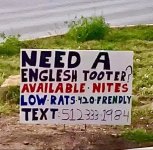 NEED A
ENGLESH TOOTER?
AVAILABLE NITES
LOW RATS·420 FRENDLY
TEXT·512 333·1984